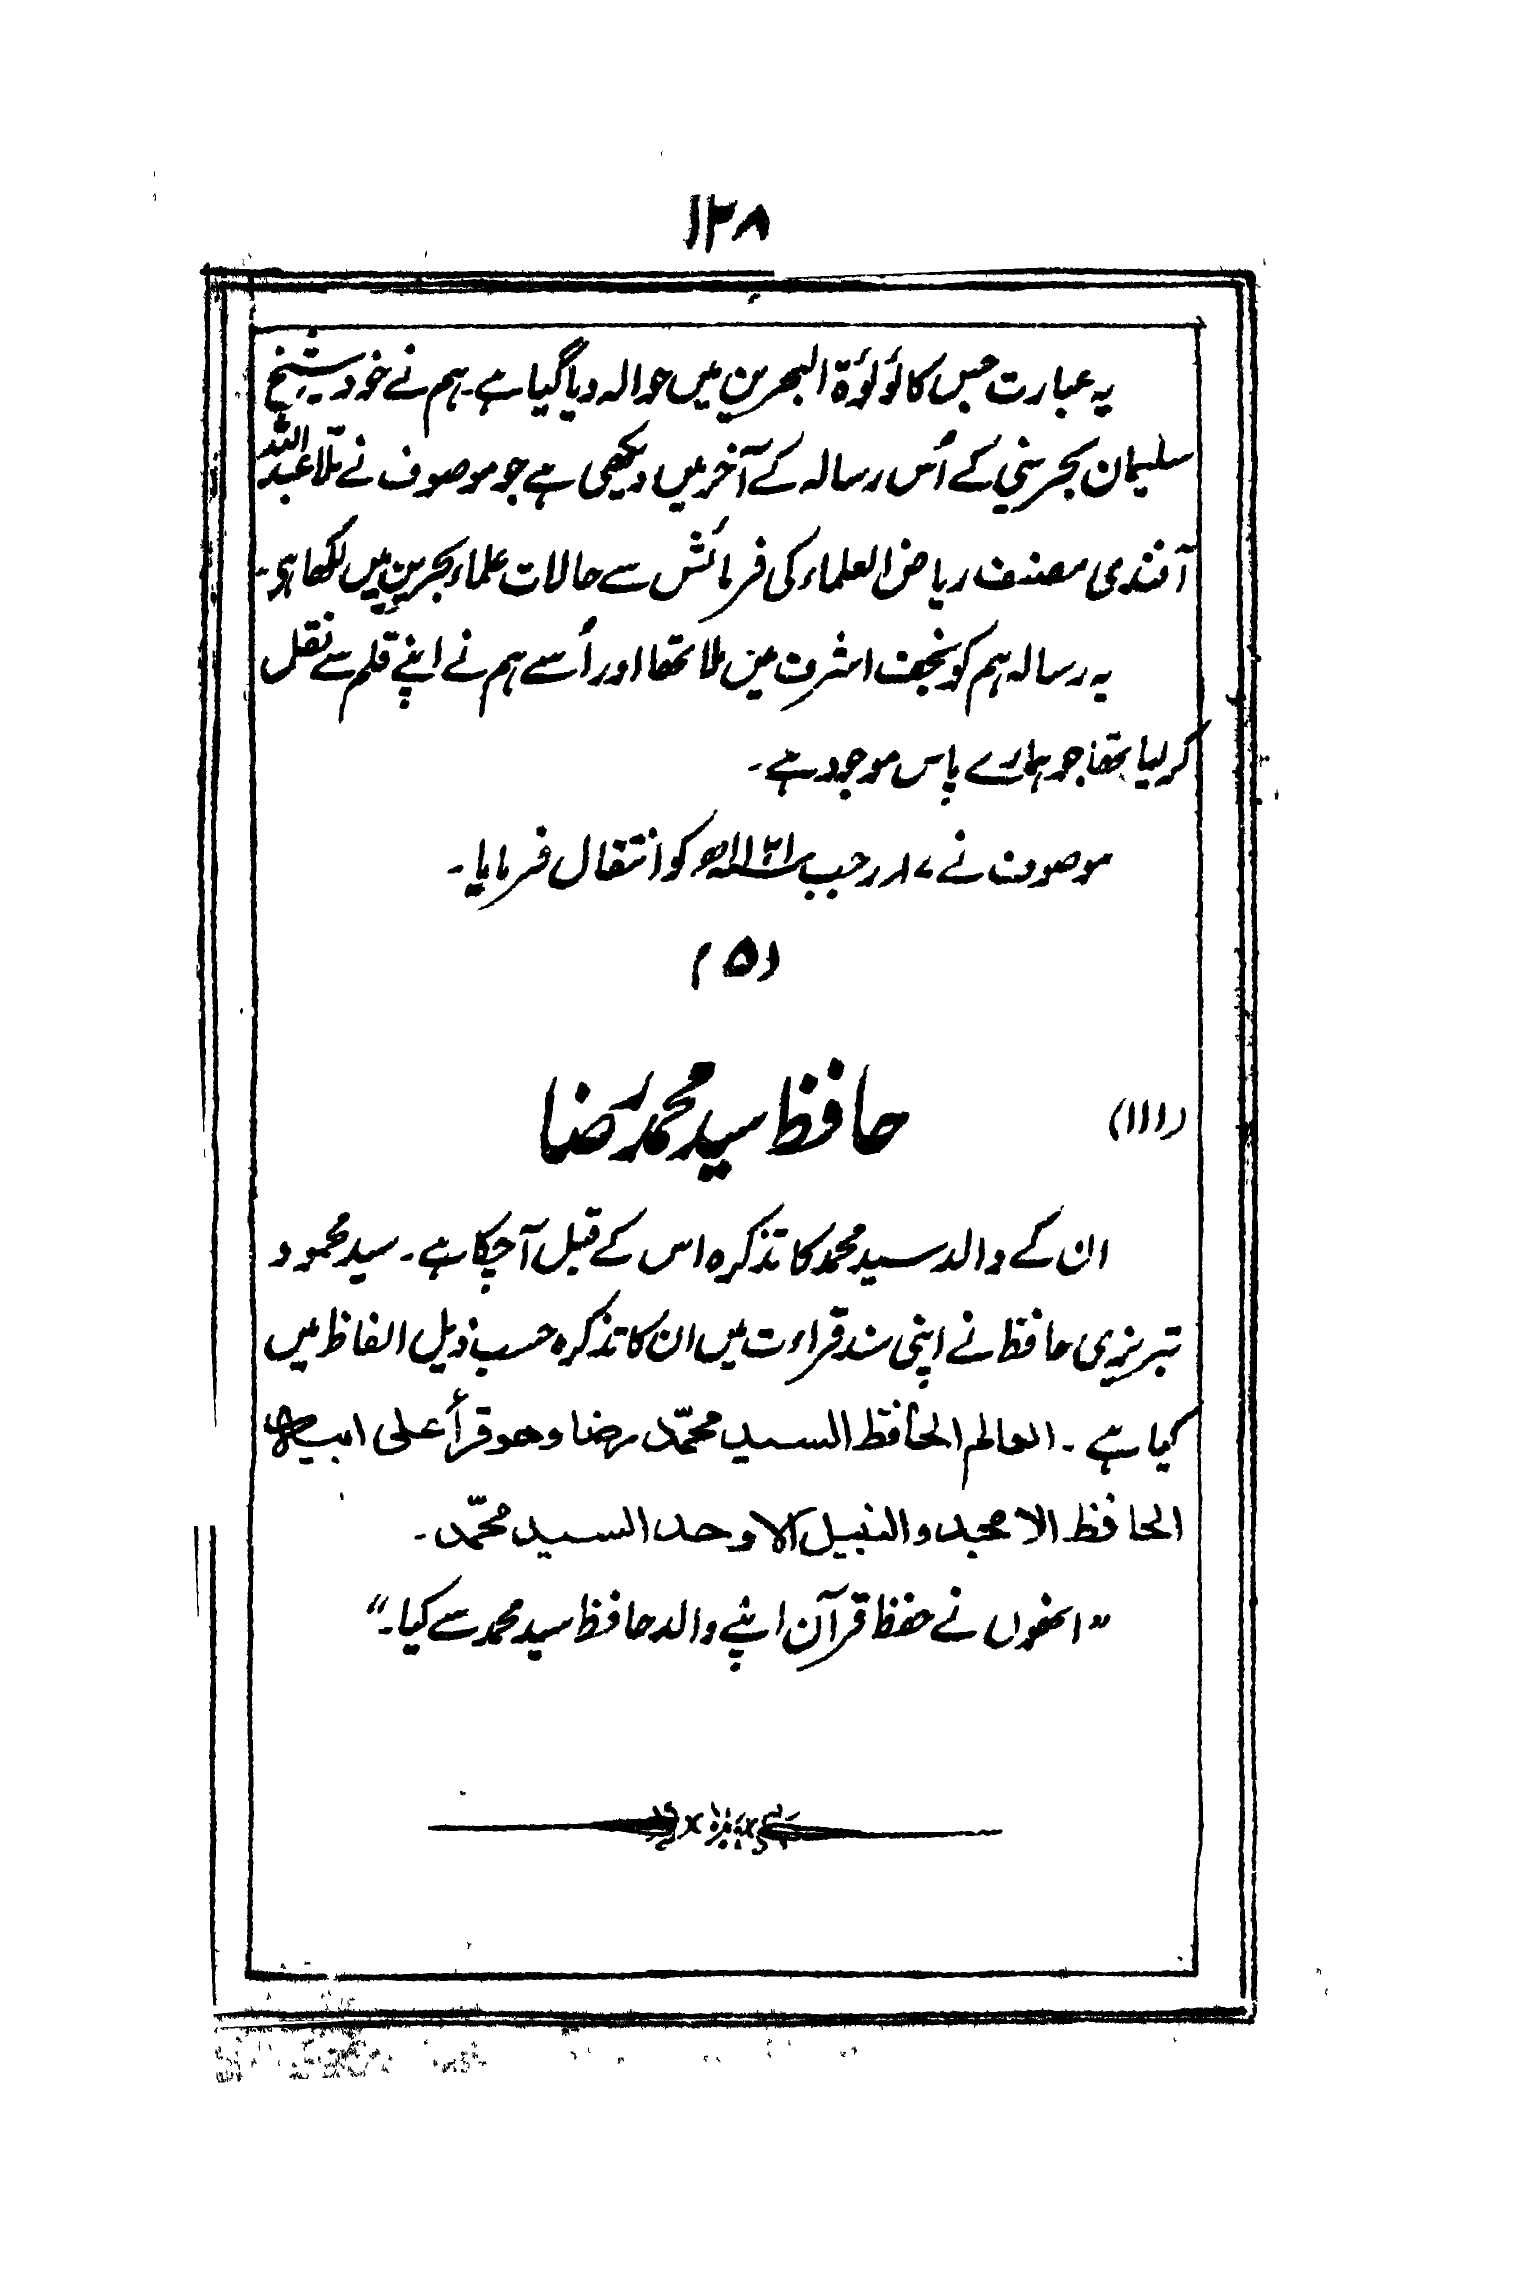 ۱۲۸
یہ عبارت جس کا لؤلؤۃ البحرین میں حوالہ دیا گیا ہے۔ ہم نے خود شیخ
سلیمان بحرینی کے اُس رسالہ کے آخر میں دیکھی ہے جو موصوف نے ملّا عبد اللہ
آفندی مصنف ریاض العلماء کی فرمائش سے حالات علماء بحرین میں لکھا ہی۔
یہ رسالہ ہم کو نجف اشرف میں ملا تھا اور اُسے ہم نے اپنے قلم سے نقل
کر لیا تھا جو ہمارے پاس موجود ہے۔
موصوف نے ۱۷ رجب ۱۱۲۱ھ کو انتقال فرمایا۔
(۵)
(۱۱۱) حافظ سید محمد رضا
ان کے والد سید محمد کا تذکرہ اس کے قبل آ چکا ہے۔ سید محمود
تبریزی حافظ نے اپنی سند قراءت میں ان کا تذکرہ حسب ذیل الفاظ میں
کیا ہے۔ العالم الحافظ السید محمّد رضا وھو قرأ علی ابیہ
الحافظ الامجد والنبیل الاوحد السید محمّد۔
"انھوں نے حفظ قرآن اپنے والد حافظ سید محمد سے کیا۔"